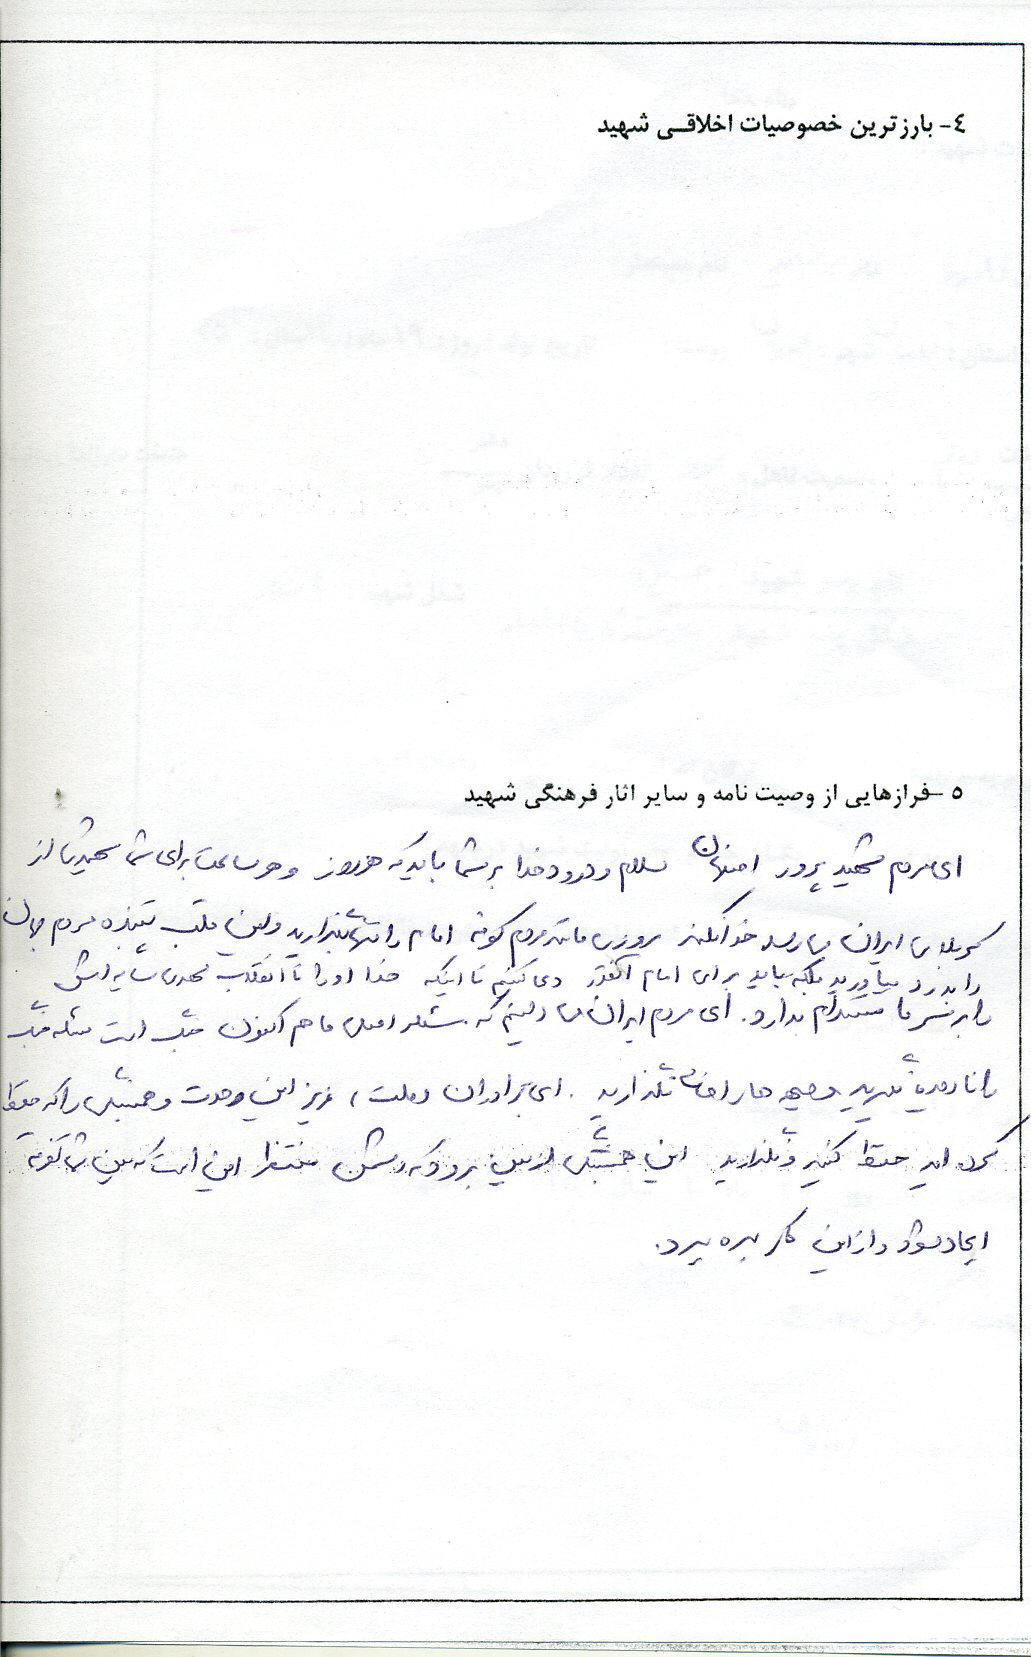 ٤- بارزترین خصوصیات اخلاقی شهید
٥ -فرازهایی از وصیت نامه و سایر اثار فرهنگی شهید
ای مردم شهید پرور اصفهان سلام و درود خدا بر شما باد که هر روز و هر ساعت برای شما شهیدی از
کربلای ایران می رسد خدا نکند روزی مانند مردم کوفه امام را تنها بگذارید و این قلب تپنده مردم جهان
را بدرد بیاورید بلکه باید برای امام آنقدر دعا کنیم تا اینکه خدا او را تا انقلاب مهدی سایه اش
را بر سر ما مستدام بدارد. ای مردم ایران می دانیم که مسئله اصلی ما هم اکنون جنگ است مسئله جنگ
را نادیده نگیرید و جبهه ها را خالی نگذارید. ای برادران و ملت عزیز این وحدت و همبستگی را که حفظ
کرده اید حفظ کنید و نگذارید این همبستگی از بین برود که دشمن منتظر این است که بین شما تفرقه
ایجاد شود و از این کار بهره ببرد.